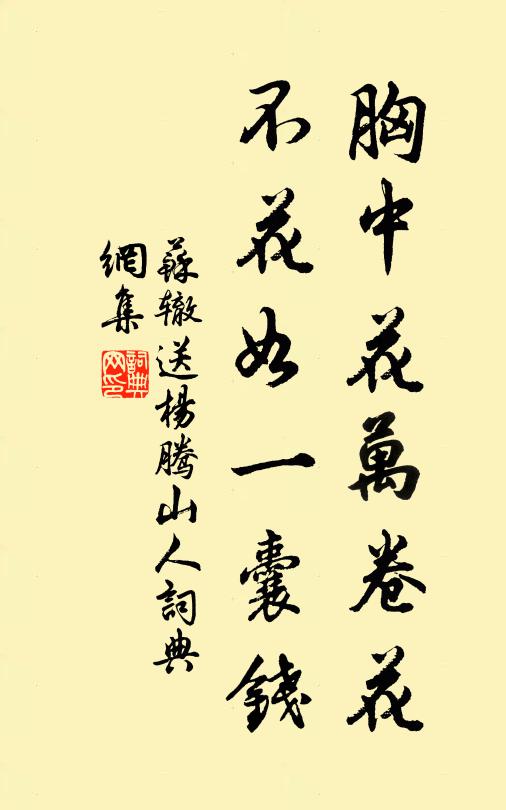 胸中花萬卷花
不花如一囊錢
蘇辙送楊騰山人詞典
網集
詞典
网印